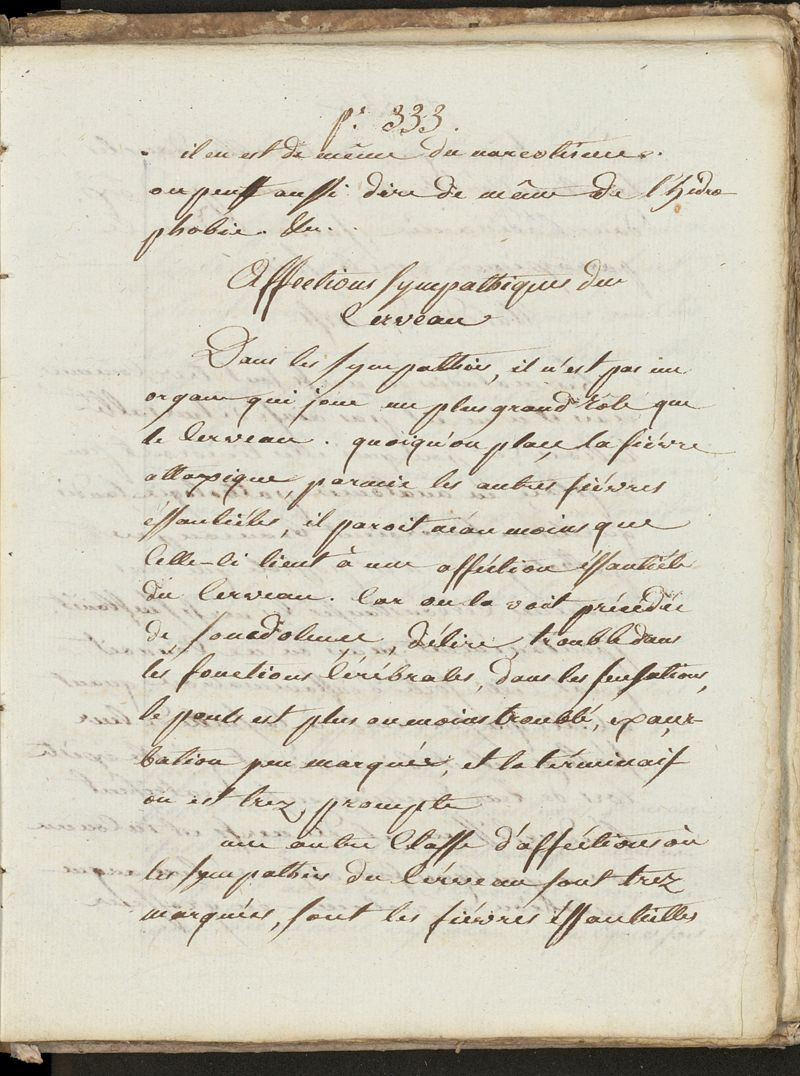 pe. 333.
il en est de même du narcotisme.
on peut aussi dire de même de l'hidro
phobie. &c.
Affections Sympathiques du
Cerveau
Dans les Sympathies, il n'est pas un
organe qui joue un plus grand rôle que
le Cerveau. quoiqu'on place la fiévre
ataxique, parmie les autres fiévres
éssentiéles, il paroit néanmoins que
Celle-Ci tient à une affection éssentiéle
du Cerveau. Car on la voit précédée
de Somnolence, délire, trouble dans
les fonctions Cérébrales, dans les sensations,
le pouls est plus ou moins troublé, exacer-
bation peu marquée, et la terminais
on est trez prompte
une autre Classe d'affections où
les Sympathies du Cerveau sont trez
marquées, sont les fiévres éssentielles